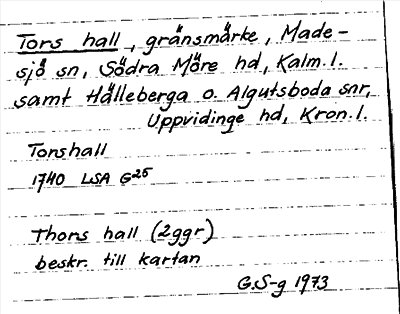 Tors hall, gränsmärke, Made-
sjö sn, Södra Möre hd, Kalm.l.
samt Hälleberga o. Algutsboda snr,
Uppvidinge hd, Kron.l.
Torshall
1740 LSA G25
Thors hall (2ggr)
beskr. till kartan
G.S-g 1973